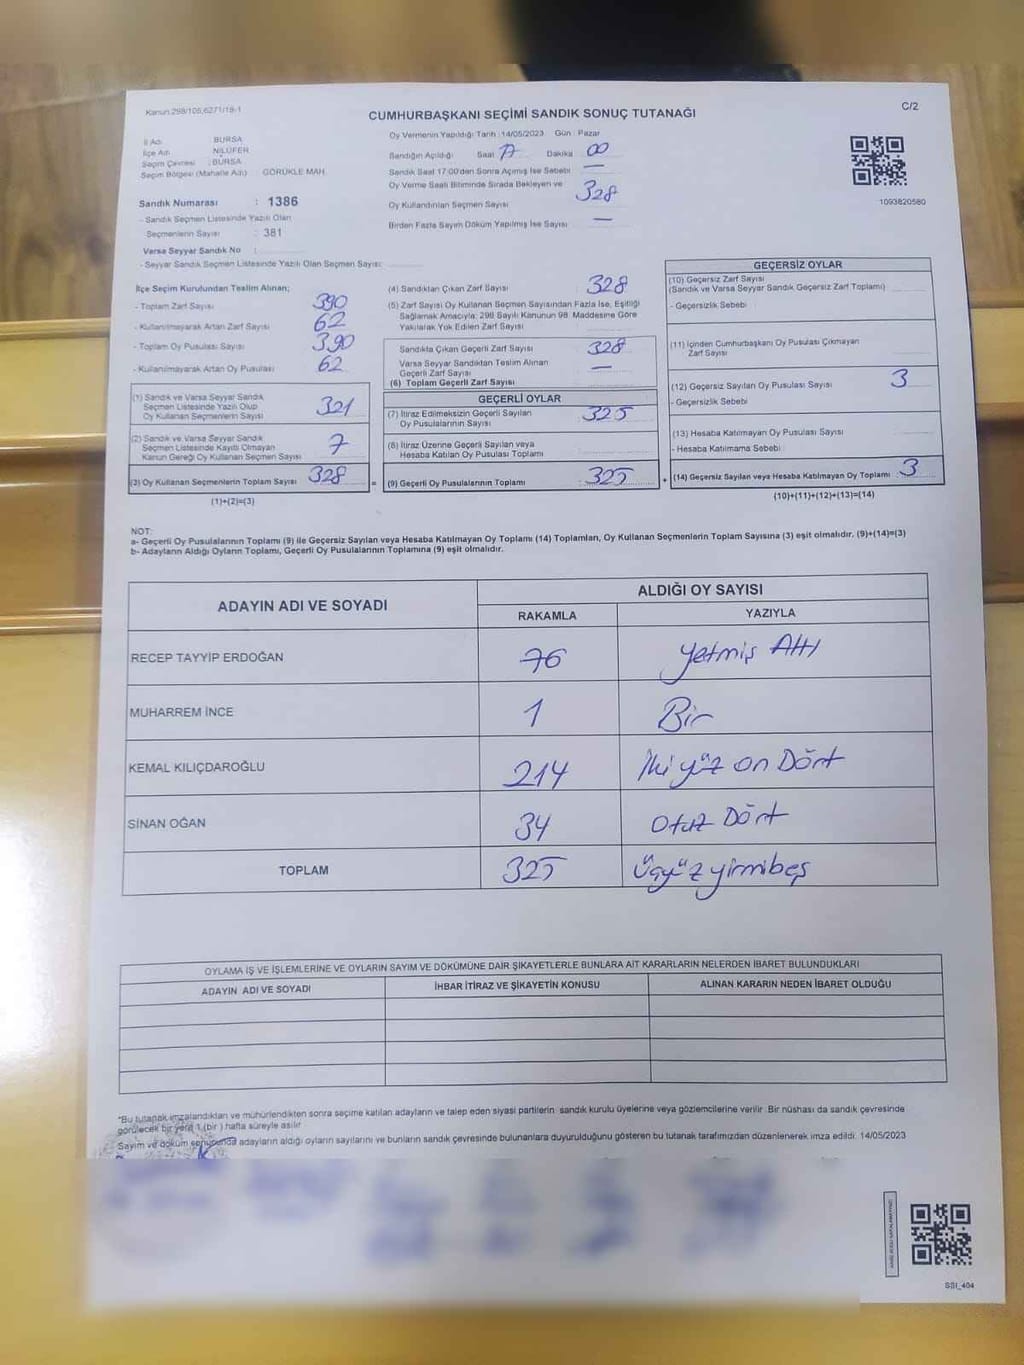 Kanun:298/105,6271/18-1
CUMHURBAŞKANI SEÇİMİ SANDIK SONUÇ TUTANAĞI
C/2
İl Adı : BURSA
İlçe Adı : NİLÜFER
Seçim Çevresi : BURSA
Seçim Bölgesi (Mahalle Adı) GÖRÜKLE MAH.
Sandık Numarası : 1386
- Sandık Seçmen Listesinde Yazılı Olan
Seçmenlerin Sayısı : 381
Varsa Seyyar Sandık No :
- Seyyar Sandık Seçmen Listesinde Yazılı Olan Seçmen Sayısı:
Oy Vermenin Yapıldığı Tarih :14/05/2023 Gün : Pazar
Sandığın Açıldığı Saat 17 Dakika 00
Sandık Saat 17:00'den Sonra Açılmış İse Sebebi —
Oy Verme Saati Bitiminde Sırada Bekleyen ve
Oy Kullandırılan Seçmen Sayısı 328
Birden Fazla Sayım Döküm Yapılmış İse Sayısı —
1093820580
İlçe Seçim Kurulundan Teslim Alınan;
- Toplam Zarf Sayısı 390
- Kullanılmayarak Artan Zarf Sayısı 62
- Toplam Oy Pusulası Sayısı 390
- Kullanılmayarak Artan Oy Pusulası 62
(1) Sandık ve Varsa Seyyar Sandık
Seçmen Listesinde Yazılı Olup
Oy Kullanan Seçmenlerin Sayısı 321
(2) Sandık ve Varsa Seyyar Sandık
Seçmen Listesinde Kayıtlı Olmayan
Kanun Gereği Oy Kullanan Seçmen Sayısı 7
(3) Oy Kullanan Seçmenlerin Toplam Sayısı 328
(1)+(2)=(3)
=
(4) Sandıktan Çıkan Zarf Sayısı 328
(5) Zarf Sayısı Oy Kullanan Seçmen Sayısından Fazla İse, Eşitliği
Sağlamak Amacıyla; 298 Sayılı Kanunun 98. Maddesine Göre
Yakılarak Yok Edilen Zarf Sayısı
Sandıkta Çıkan Geçerli Zarf Sayısı 328
Varsa Seyyar Sandıktan Teslim Alınan
Geçerli Zarf Sayısı —
(6) Toplam Geçerli Zarf Sayısı
GEÇERLİ OYLAR
(7) İtiraz Edilmeksizin Geçerli Sayılan
Oy Pusulalarının Sayısı 325
(8) İtiraz Üzerine Geçerli Sayılan veya
Hesaba Katılan Oy Pusulası Toplamı
(9) Geçerli Oy Pusulalarının Toplamı : 325
+
GEÇERSİZ OYLAR
(10) Geçersiz Zarf Sayısı
(Sandık ve Varsa Seyyar Sandık Geçersiz Zarf Toplamı)
- Geçersizlik Sebebi
(11) İçinden Cumhurbaşkanı Oy Pusulası Çıkmayan
Zarf Sayısı
(12) Geçersiz Sayılan Oy Pusulası Sayısı 3
- Geçersizlik Sebebi
(13) Hesaba Katılmayan Oy Pusulası Sayısı
- Hesaba Katılmama Sebebi
(14) Geçersiz Sayılan veya Hesaba Katılmayan Oy Toplamı : 3
(10)+(11)+(12)+(13)=(14)
NOT:
a- Geçerli Oy Pusulalarının Toplamı (9) ile Geçersiz Sayılan veya Hesaba Katılmayan Oy Toplamı (14) Toplamları, Oy Kullanan Seçmenlerin Toplam Sayısına (3) eşit olmalıdır. (9)+(14)=(3)
b- Adayların Aldığı Oyların Toplamı, Geçerli Oy Pusulalarının Toplamına (9) eşit olmalıdır.
ADAYIN ADI VE SOYADI
ALDIĞI OY SAYISI
RAKAMLA YAZIYLA
RECEP TAYYİP ERDOĞAN 76 Yetmiş Altı
MUHARREM İNCE 1 Bir
KEMAL KILIÇDAROĞLU 214 İki yüz on Dört
SİNAN OĞAN 34 Otuz Dört
TOPLAM 325 Üçyüz yirmibeş
OYLAMA İŞ VE İŞLEMLERİNE VE OYLARIN SAYIM VE DÖKÜMÜNE DAİR ŞİKAYETLERLE BUNLARA AİT KARARLARIN NELERDEN İBARET BULUNDUKLARI
ADAYIN ADI VE SOYADI İHBAR İTİRAZ VE ŞİKAYETİN KONUSU ALINAN KARARIN NEDEN İBARET OLDUĞU
*Bu tutanak imzalandıktan ve mühürlendikten sonra seçime katılan adayların ve talep eden siyasi partilerin sandık kurulu üyelerine veya gözlemcilerine verilir. Bir nüshası da sandık çevresinde
görülecek bir yere 1 (bir) hafta süreyle asılır
Sayım ve döküm sonucunda adayların aldığı oyların sayılarını ve bunların sandık çevresinde bulunanlara duyurulduğunu gösteren bu tutanak tarafımızdan düzenlenerek imza edildi. 14/05/2023
SSI_404